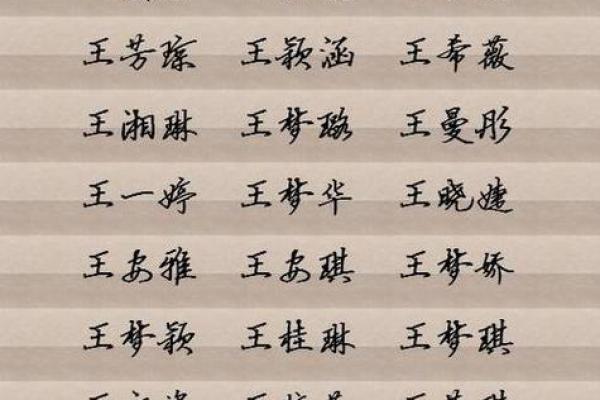 王芳琼 王颖涵 王希薇
王湘琳 王梦璐 王曼彤
王一婷 王梦华 王晓婕
王安雅 王安琪 王梦娇
王梦颖 王桂琳 王梦琪